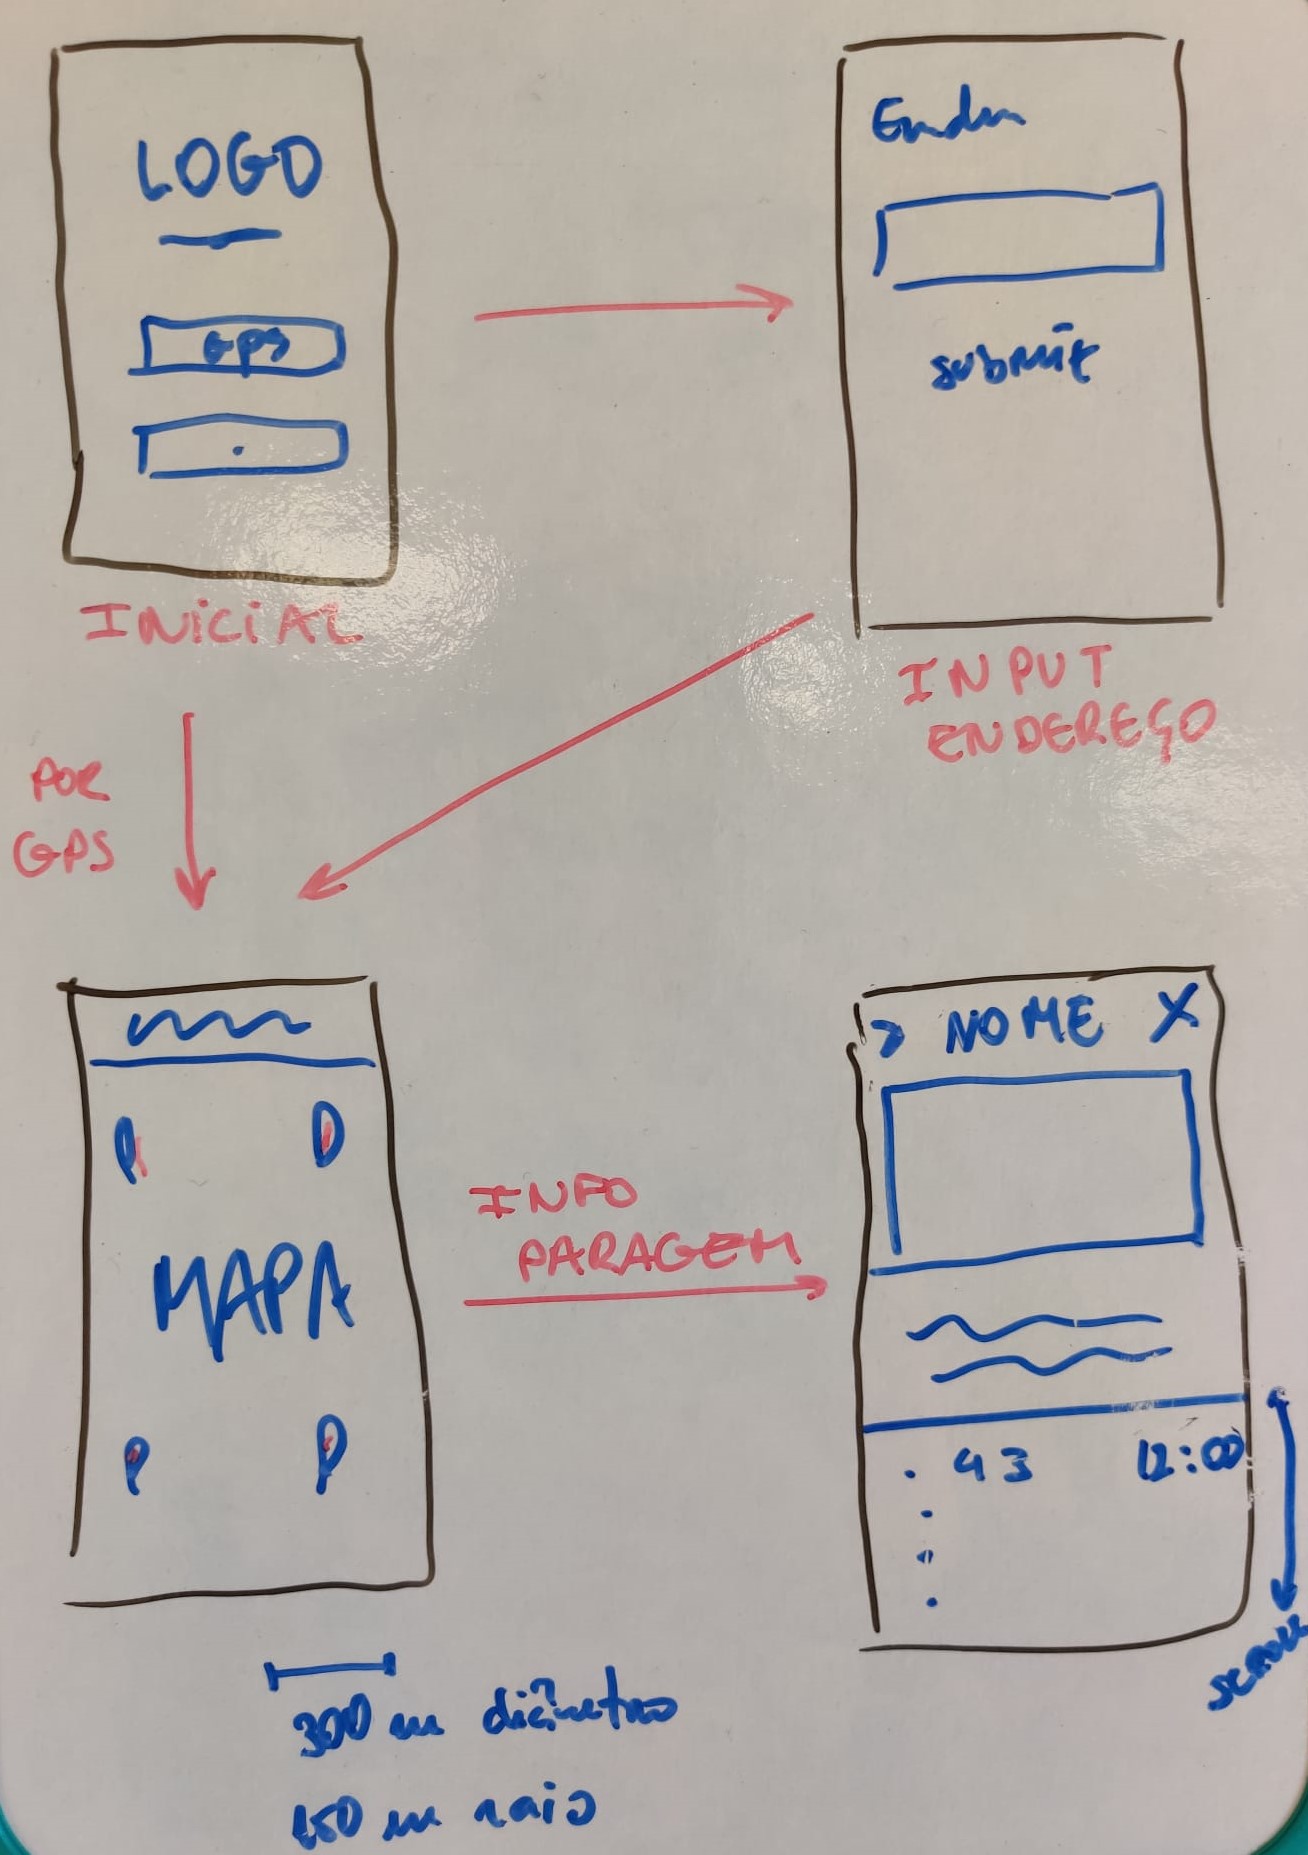 LOGO
GPS
INICIAL
submit
INPUT
ENDEREÇO
POR
GPS
MAPA
P
P
INFO
PARAGEM
> NOME X
43 12:00
SCROLL
300 m diâmetro
150 m raio